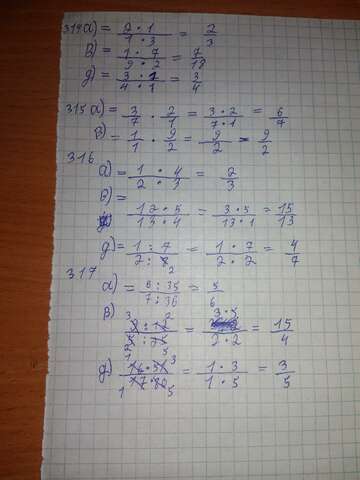 314 а) = 2 · 1 / 1 · 3 = 2/3
в) = 1 · 7 / 9 · 2 = 7/18
д) = 3 · 1 / 4 · 1 = 3/4
315 а) = 3/7 · 2/1 = 3 · 2 / 7 · 1 = 6/7
в) = 1/1 · 9/2 = 9/2 = 9/2
316
а) = 1 · 4 / 2 · 3 = 2/3
в) =
12 · 5 / 13 · 4 = 3 · 5 / 13 · 1 = 15/13
д) = 1 : 7 / 2 : 8 2 = 1 · 7 / 2 · 2 = 4/7
317
а) = 6 : 35 / 7 : 36 = 5/6
в) = 3 · 5 / 2 · 2 = 15/4
д) 16 · 51 3 / 1 17 · 80 5 = 1 · 3 / 1 · 5 = 3/5